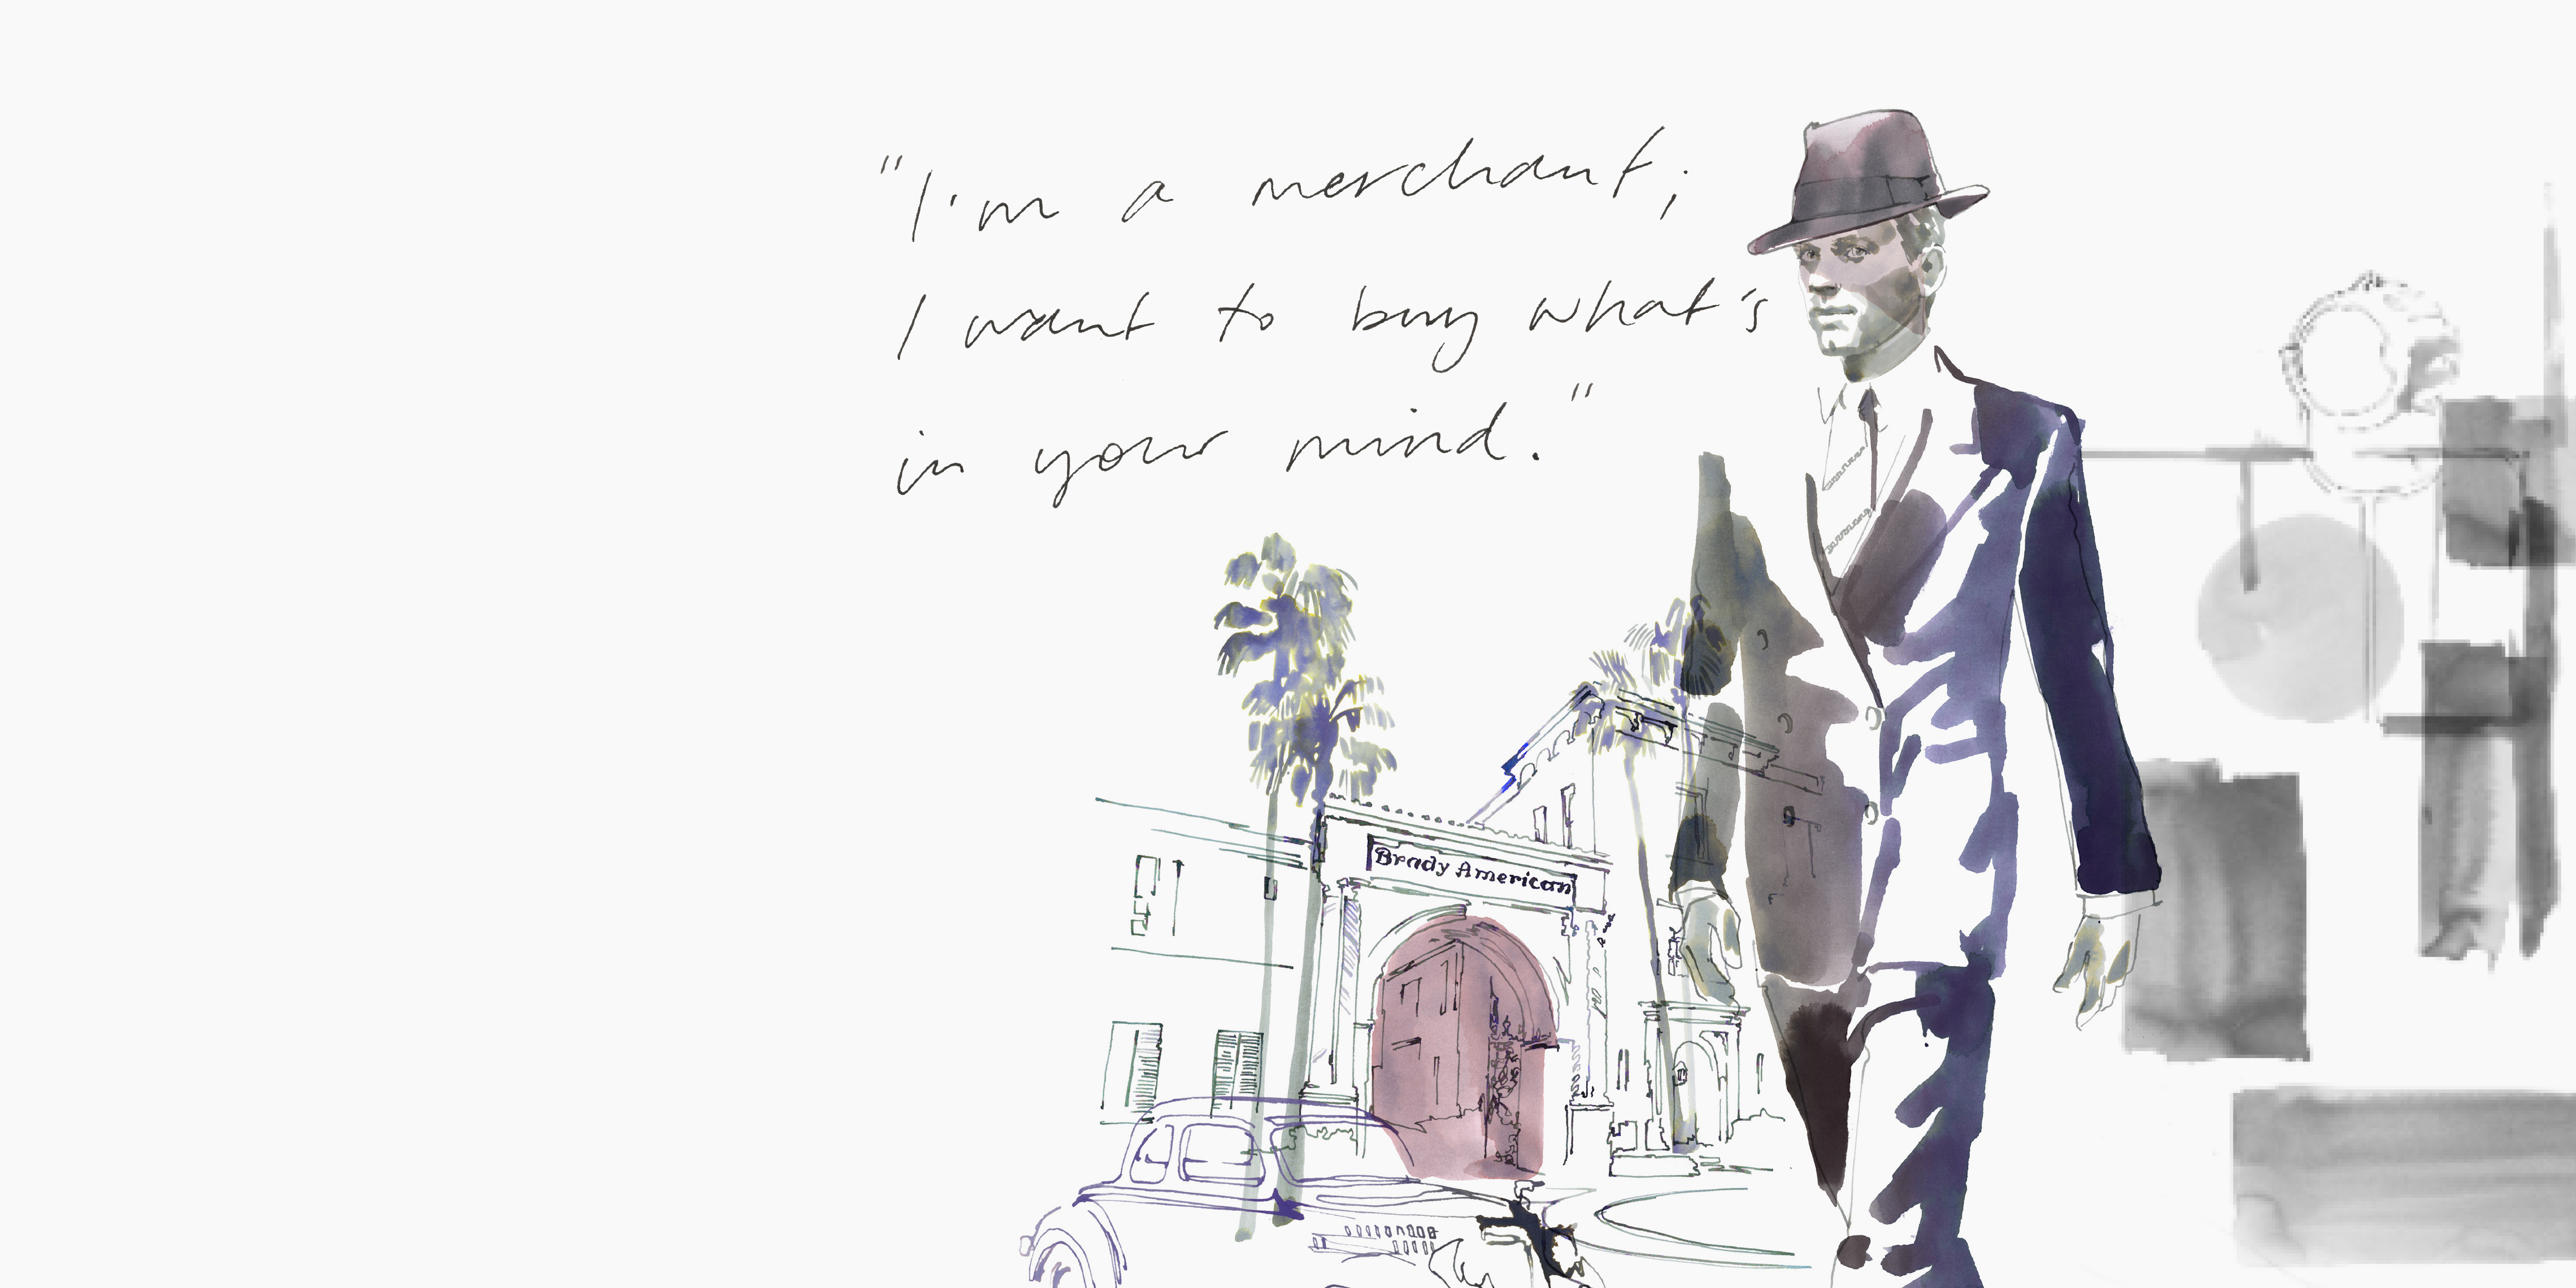 "I'm a merchant;
I want to buy what's
in your mind."
Brady American